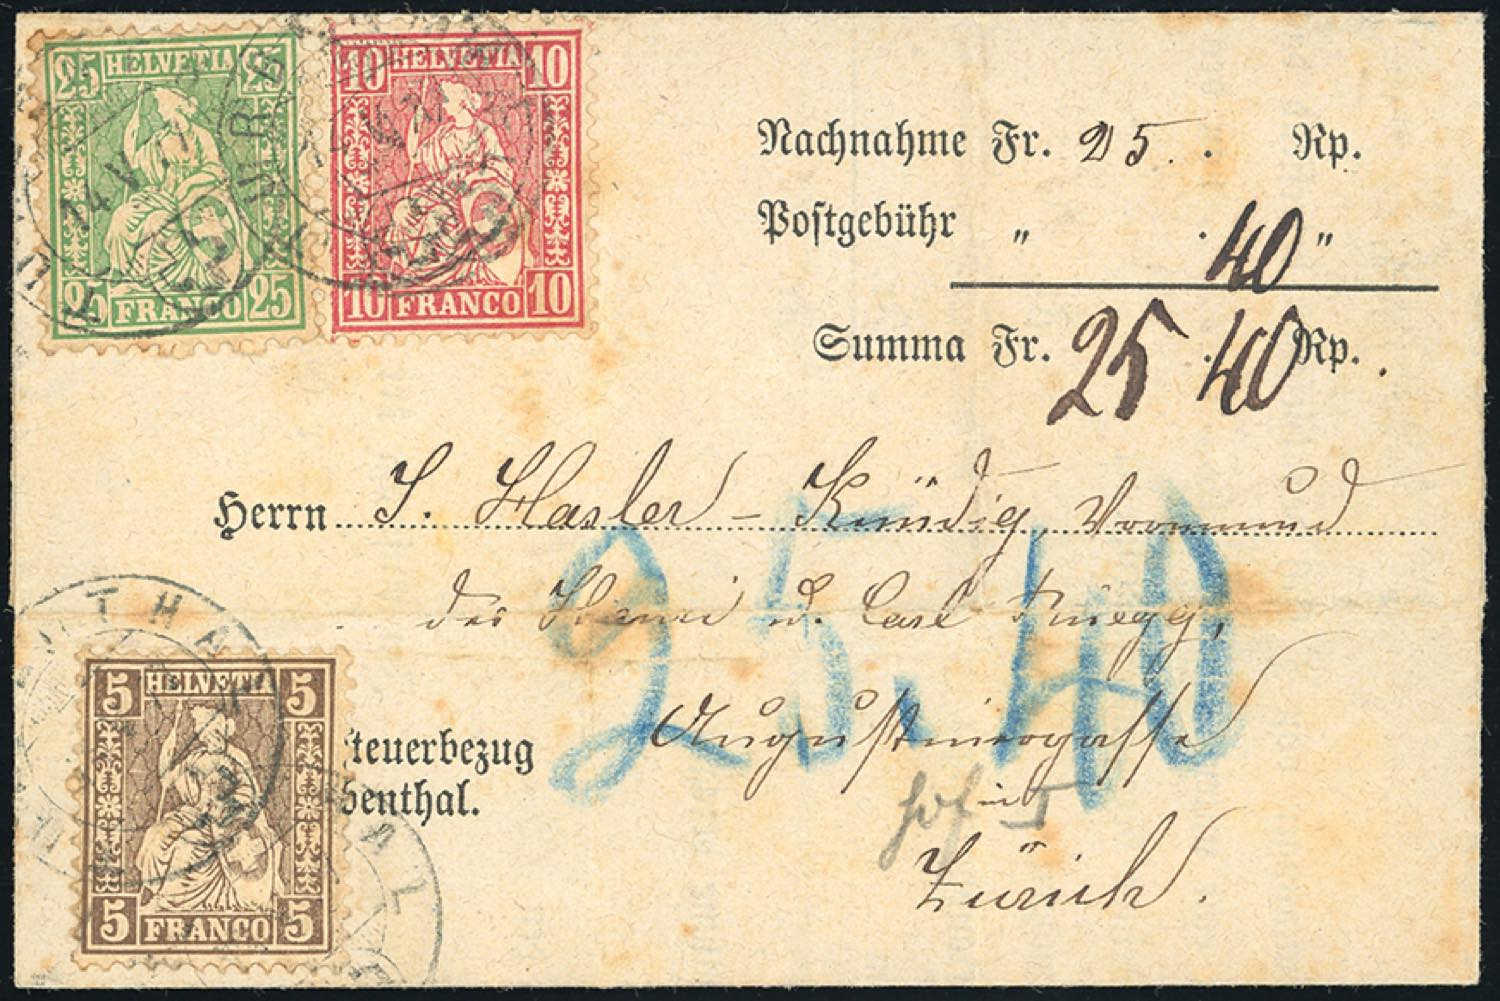 25 HELVETIA 25
25 FRANCO 25
10 HELVETIA 10
10 FRANCO 10
14 V
Nachnahme Fr. 25. . Rp.
Postgebühr „ . 40 „
Summa Fr. 25 . 40 Rp.
Herrn S. Hasler - Kündig, Vormund
des Henri u. Carl Ruegg,
25.40
Augustinergasse
hof in I
Zürich.
5 HELVETIA 5
5 FRANCO 5
Steuerbezug
benthal.